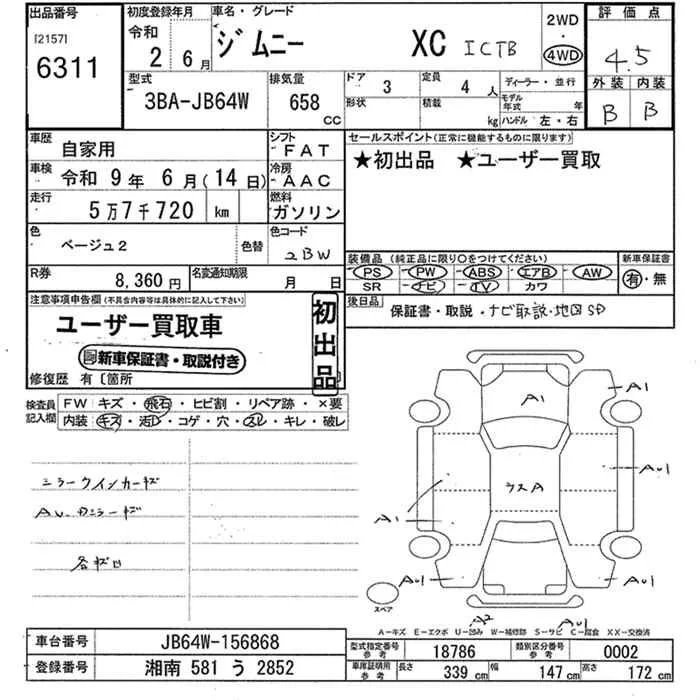 出品番号
[2157]
6311
初度登録年月
令和
2 6月
車名・グレード
ジムニー XC ICTB
2WD
・
4WD
評価点
4.5
外装 内装
B B
型式
3BA-JB64W
排気量
658
CC
ドア 3
形状
定員 4 人
積載 kg
ディーラー・並行
モデル年式 年
ハンドル 左・右
車歴 自家用
シフト FAT
車検 令和 9年 6月(14日)
冷房 AAC
走行 5万7千720 km
燃料 ガソリン
色 ベージュ2
色替
色コード
2BW
R券 8,360円
名変通知期限 月 日
セールスポイント(正常に機能するものに限ります)
★初出品 ★ユーザー買取
装備品(純正品に限り○をつけてください)
PS ・ PW ・ ABS ・ エアB ・ AW
SR ・ ナビ ・ TV ・ カワ
新車保証書
有・無
後日品 保証書・取説・ナビ取説・地図SD
注意事項申告欄(不具合内容等は具体的に記入して下さい)
ユーザー買取車
新車保証書・取説付き
初出品
修復歴 有〔箇所
検査員記入欄
FW キズ・飛石・ヒビ割・リペア跡・×要
内装 キズ・汚レ・コゲ・穴・スレ・キレ・破レ
ミラーウインカーキズ
各キズ凹
A1
A1
AU1
ラスA
A1
AU1
AU1
スペア
A2
AU1
A-キズ E-エクボ U-凹み W-補修跡 S-サビ C-腐食 XX-交換済
車台番号 JB64W-156868
登録番号 湘南 581 う 2852
型式指定番号参考 18786
類別区分番号参考 0002
車庫証明用参考 長さ 339 cm 幅 147 cm 高さ 172 cm